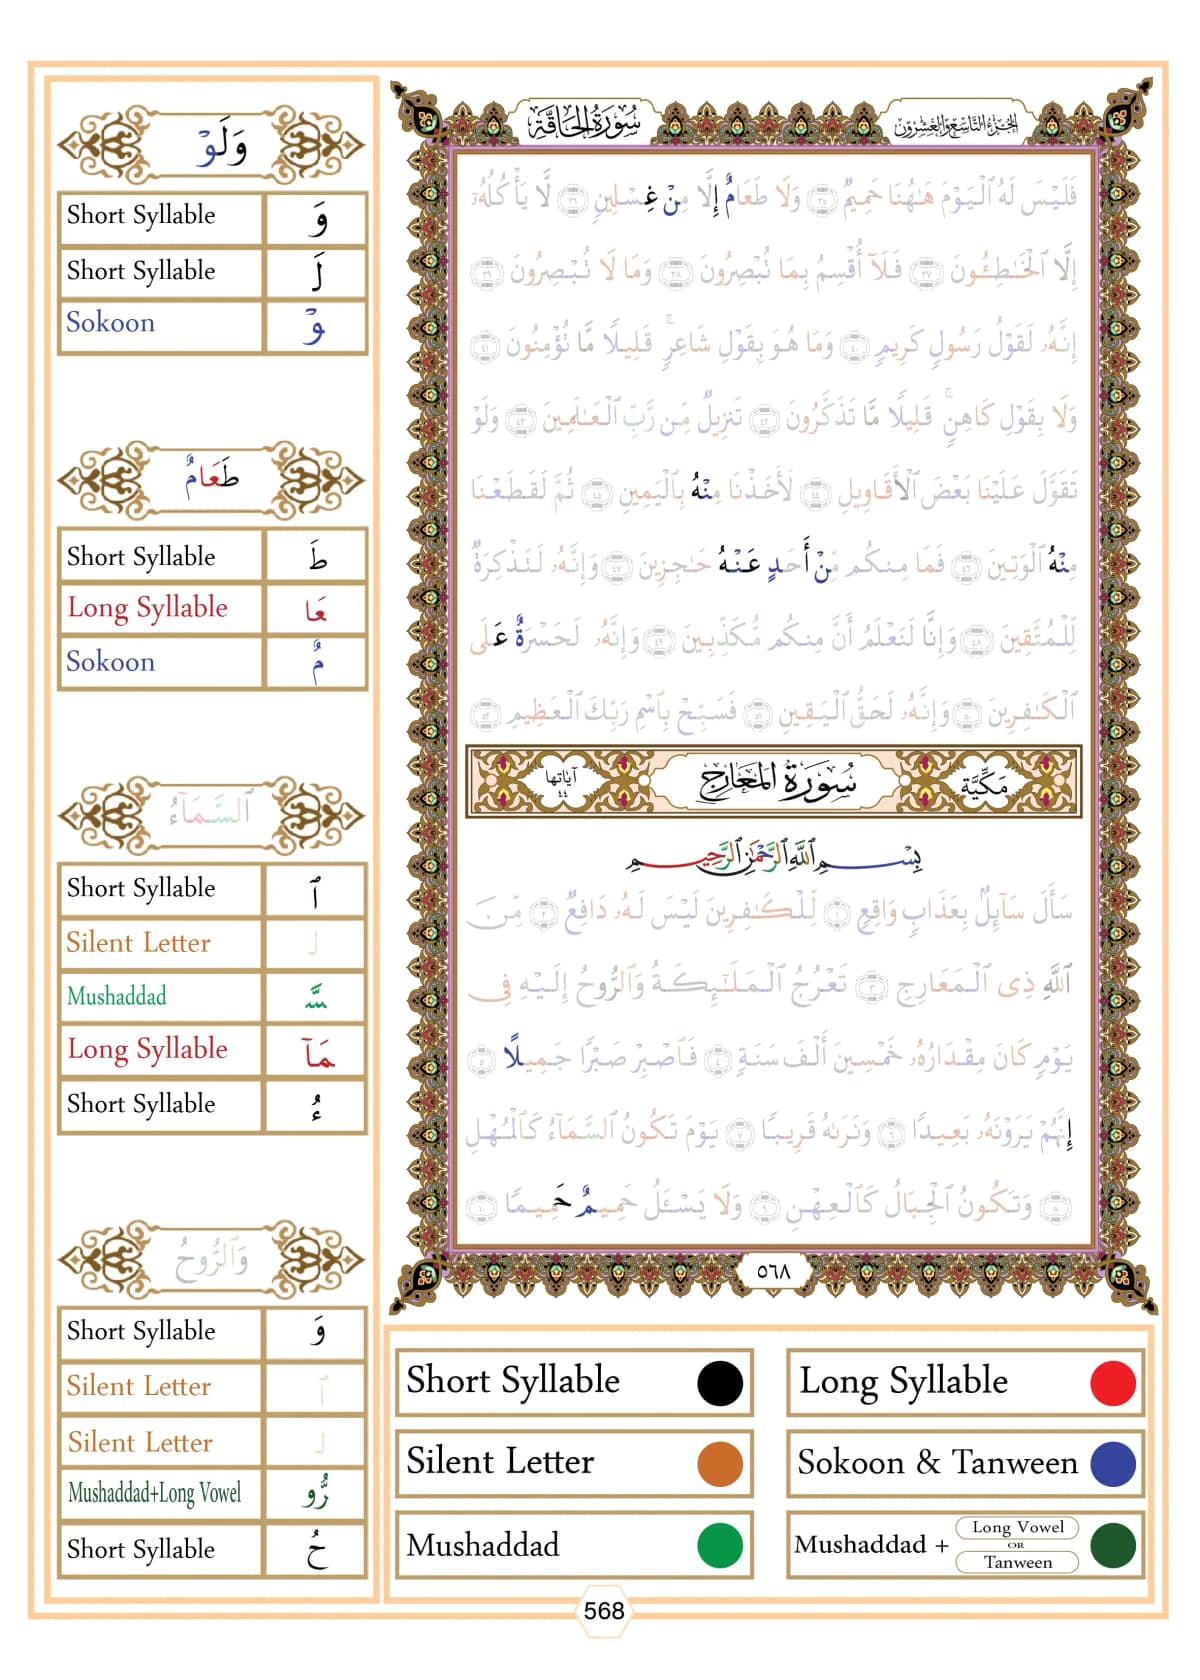 سُورَةُ الحَاقَّة
الجزء التاسع والعشرون
وَلَوْ
Short Syllable وَ
Short Syllable لَ
Sokoon وْ
طَعَامٌ
Short Syllable طَ
Long Syllable عَا
Sokoon مٌ
ٱلسَّمَآءُ
Short Syllable ٱ
Silent Letter ل
Mushaddad سَّ
Long Syllable مَآ
Short Syllable ءُ
وَٱلرُّوحُ
Short Syllable وَ
Silent Letter ٱ
Silent Letter ل
Mushaddad+Long Vowel رُّو
Short Syllable حُ
فَلَيْسَ لَهُ ٱلْيَوْمَ هَـٰهُنَا حَمِيمٌ ٣٥ وَلَا طَعَامٌ إِلَّا مِنْ غِسْلِينٍ ٣٦ لَّا يَأْكُلُهُۥٓ
إِلَّا ٱلْخَـٰطِـُٔونَ ٣٧ فَلَآ أُقْسِمُ بِمَا تُبْصِرُونَ ٣٨ وَمَا لَا تُبْصِرُونَ ٣٩
إِنَّهُۥ لَقَوْلُ رَسُولٍ كَرِيمٍ ٤٠ وَمَا هُوَ بِقَوْلِ شَاعِرٍ ۚ قَلِيلًا مَّا تُؤْمِنُونَ ٤١
وَلَا بِقَوْلِ كَاهِنٍ ۚ قَلِيلًا مَّا تَذَكَّرُونَ ٤٢ تَنزِيلٌ مِّن رَّبِّ ٱلْعَـٰلَمِينَ ٤٣ وَلَوْ
تَقَوَّلَ عَلَيْنَا بَعْضَ ٱلْأَقَاوِيلِ ٤٤ لَأَخَذْنَا مِنْهُ بِٱلْيَمِينِ ٤٥ ثُمَّ لَقَطَعْنَا
مِنْهُ ٱلْوَتِينَ ٤٦ فَمَا مِنكُم مِّنْ أَحَدٍ عَنْهُ حَـٰجِزِينَ ٤٧ وَإِنَّهُۥ لَتَذْكِرَةٌ
لِّلْمُتَّقِينَ ٤٨ وَإِنَّا لَنَعْلَمُ أَنَّ مِنكُم مُّكَذِّبِينَ ٤٩ وَإِنَّهُۥ لَحَسْرَةٌ عَلَى
ٱلْكَـٰفِرِينَ ٥٠ وَإِنَّهُۥ لَحَقُّ ٱلْيَقِينِ ٥١ فَسَبِّحْ بِٱسْمِ رَبِّكَ ٱلْعَظِيمِ ٥٢
مَكِّيَّة سُورَةُ المَعَارِج آيَاتُهَا ٤٤
بِسْمِ ٱللَّهِ ٱلرَّحْمَـٰنِ ٱلرَّحِيمِ
سَأَلَ سَآئِلٌۢ بِعَذَابٍ وَاقِعٍ ١ لِّلْكَـٰفِرِينَ لَيْسَ لَهُۥ دَافِعٌ ٢ مِّنَ
ٱللَّهِ ذِى ٱلْمَعَارِجِ ٣ تَعْرُجُ ٱلْمَلَـٰٓئِكَةُ وَٱلرُّوحُ إِلَيْهِ فِى
يَوْمٍ كَانَ مِقْدَارُهُۥ خَمْسِينَ أَلْفَ سَنَةٍ ٤ فَٱصْبِرْ صَبْرًا جَمِيلًا ٥
إِنَّهُمْ يَرَوْنَهُۥ بَعِيدًا ٦ وَنَرَىٰهُ قَرِيبًا ٧ يَوْمَ تَكُونُ ٱلسَّمَآءُ كَٱلْمُهْلِ
٨ وَتَكُونُ ٱلْجِبَالُ كَٱلْعِهْنِ ٩ وَلَا يَسْـَٔلُ حَمِيمٌ حَمِيمًا ١٠
٥٦٨
Short Syllable
Long Syllable
Silent Letter
Sokoon & Tanween
Mushaddad
Mushaddad + Long Vowel OR Tanween
568